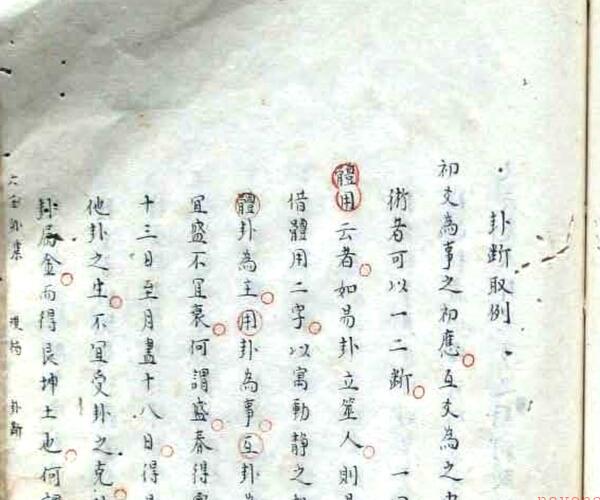 卦斷取例
初爻為事之初應互爻為之中
術者可以一二斷 一
體用云者如易卦立筮人則是
借體用二字以寓動靜之
體卦為主用卦為事互卦為
宜盛不宜衰何謂盛春得震
十三日至月盡十八日得
他卦之生不宜受卦之克
卦屬金而得艮坤土也何謂
卦斷